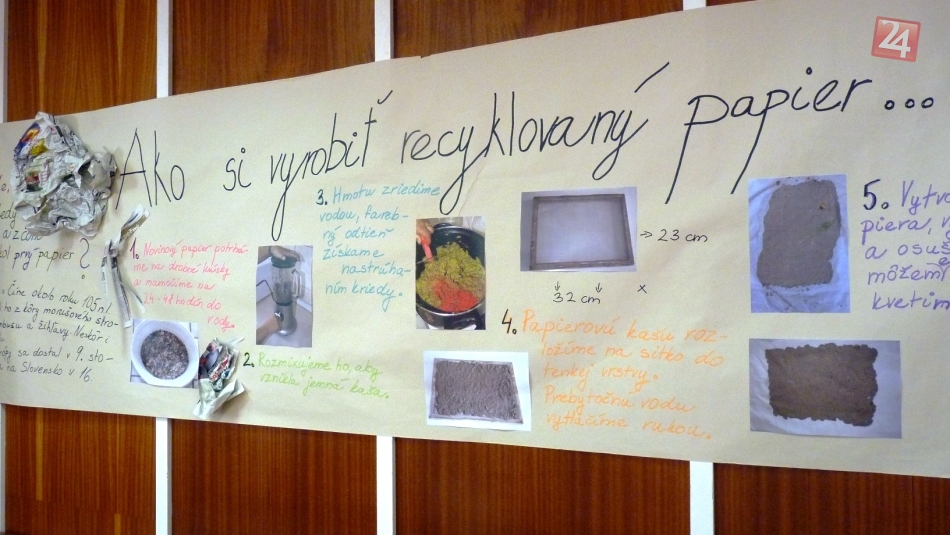 24
Ako si vyrobiť recyklovaný papier...
prvý papier?
Číne okolo roku 105 n.l.
z kôry morušového stro-
a žihľavy. Neskôr i
sa dostal v 9. sto-
na Slovensko v 16.
1. Novinový papier potrhá-
me na drobné kúsky
a namočíme na
24-48 hodín do
vody.
2. Rozmixujeme ho, aby
vznikla jemná kaša.
3. Hmotu zriedime
vodou, fareb-
ný odtieň
získame
nastrúha-
ním kriedy.
→ 23 cm
32 cm x
4. Papierovú kašu roz-
ložíme na sitko do
tenkej vrstvy.
Prebytočnú vodu
vytlačíme rukou.
5. Vytvo
piera,
a osuš
môžem
kvetin